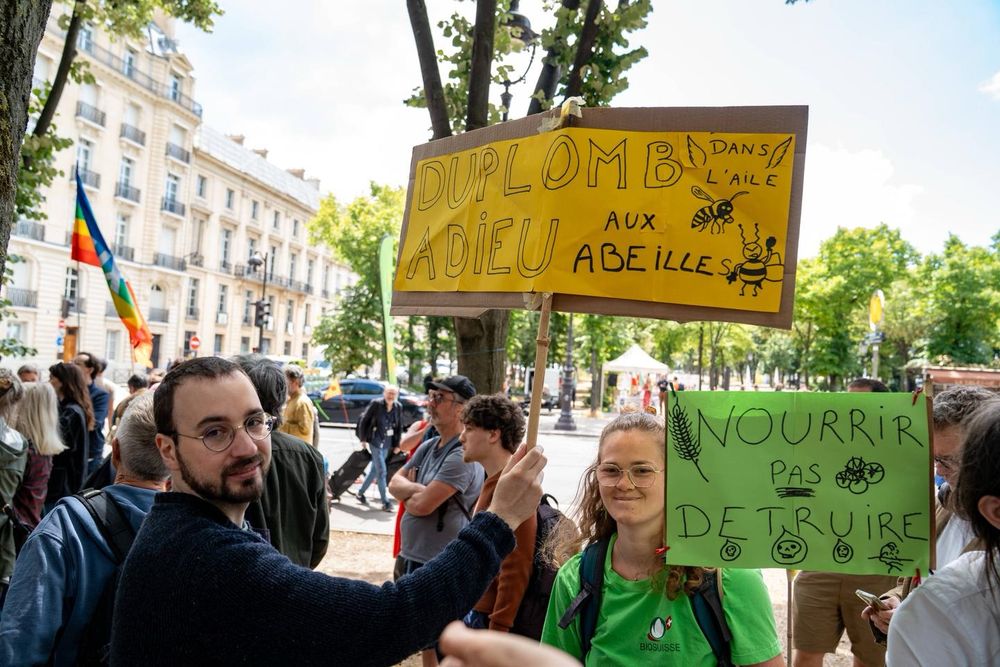 DUPLOMB DANS
L'AILE
ADIEU AUX
ABEILLES
NOURRIR
PAS
DETRUIRE
BIOSUISSE